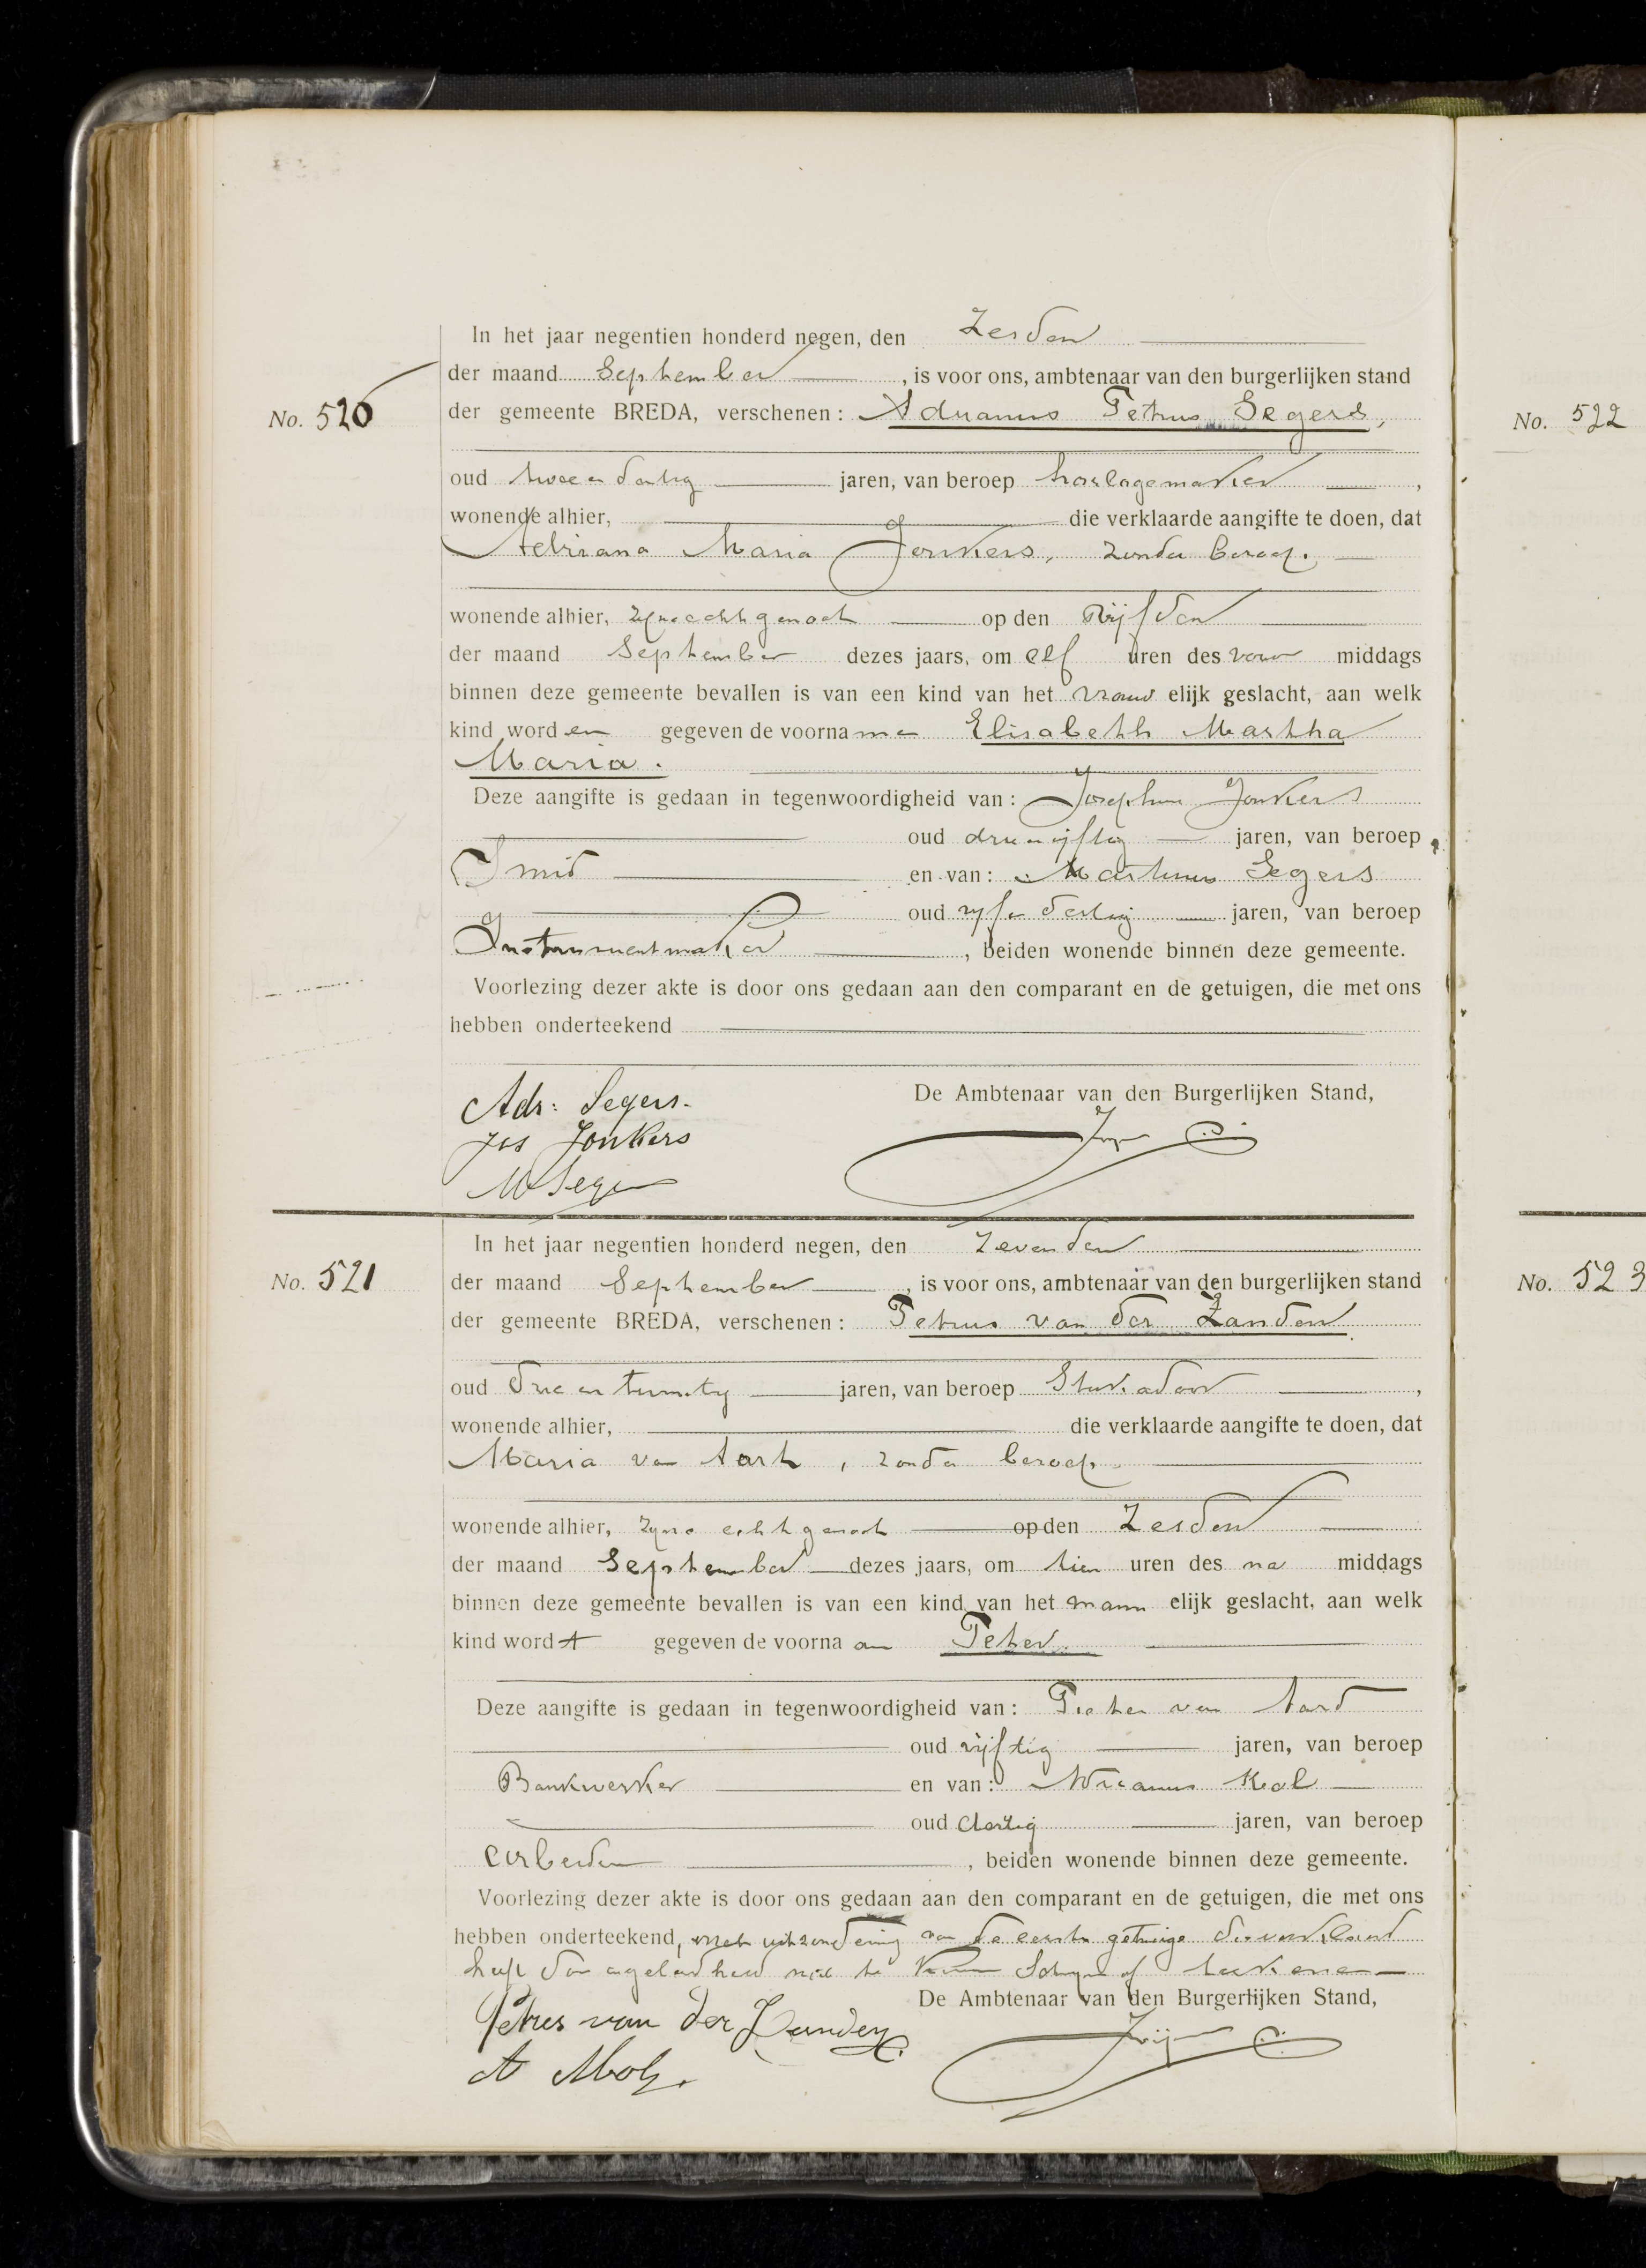 In het jaar negentien honderd negen, den Zesden
der maand September, is voor ons, ambtenaar van den burgerlijken stand
No. 520
der gemeente BREDA, verschenen: Adrianus Petrus Segers,
oud twee en dertig jaren, van beroep horlogemaker,
wonende alhier, die verklaarde aangifte te doen, dat
Adriana Maria Jonkers, zonder beroep.
wonende alhier, zijne echtgenoot op den Vijfden
der maand September dezes jaars, om elf uren des voor middags
binnen deze gemeente bevallen is van een kind van het vrouw elijk geslacht, aan welk
kind worden gegeven de voornamen Elisabeth Martha
Maria.
Deze aangifte is gedaan in tegenwoordigheid van: Josephus Jonkers
oud drie en vijftig jaren, van beroep
Smid en van: Martinus Segers
oud vijf en dertig jaren, van beroep
Instrumentmaker, beiden wonende binnen deze gemeente.
Voorlezing dezer akte is door ons gedaan aan den comparant en de getuigen, die met ons
hebben onderteekend
De Ambtenaar van den Burgerlijken Stand,
Adr: Segers.
Jos Jonkers
M Segers
In het jaar negentien honderd negen, den Zevenden
No. 521
der maand September, is voor ons, ambtenaar van den burgerlijken stand
der gemeente BREDA, verschenen: Petrus van der Zanden
oud drie en twintig jaren, van beroep Stukadoor,
wonende alhier, die verklaarde aangifte te doen, dat
Maria van Aart, zonder beroep.
wonende alhier, zijne echtgenoot op den Zesden
der maand September dezes jaars, om tien uren des na middags
binnen deze gemeente bevallen is van een kind van het mann elijk geslacht, aan welk
kind wordt gegeven de voornaam Peter.
Deze aangifte is gedaan in tegenwoordigheid van: Pieter van Aard
oud vijftig jaren, van beroep
Bankwerker en van: Adrianus
oud dertig jaren, van beroep
arbeider, beiden wonende binnen deze gemeente.
Voorlezing dezer akte is door ons gedaan aan den comparant en de getuigen, die met ons
hebben onderteekend, met uitzondering van de eerste getuige die verklaard
heeft door ongeleerdheid niet te kunnen schrijven of teekenen
De Ambtenaar van den Burgerlijken Stand,
Petrus van der Zanden
A Mol.
No. 522
No. 523